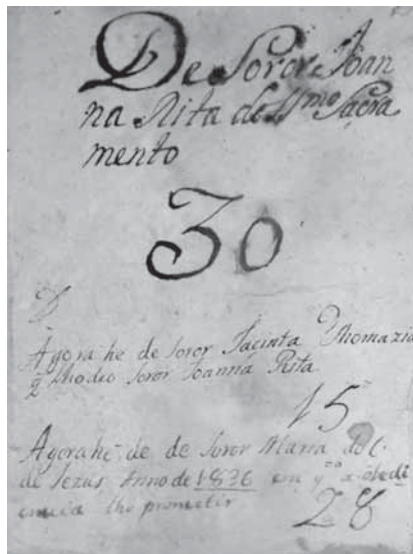 De Soror Joan
na Rita do SSmo Sacra
mento
30
Agora he de Soror Jacinta Thomazia
q lho deo Soror Joanna Rita
15
Agora he de de Soror Maria do C.
de Jezus Anno de 1836 em qto a obedi
encia lho prometir
28